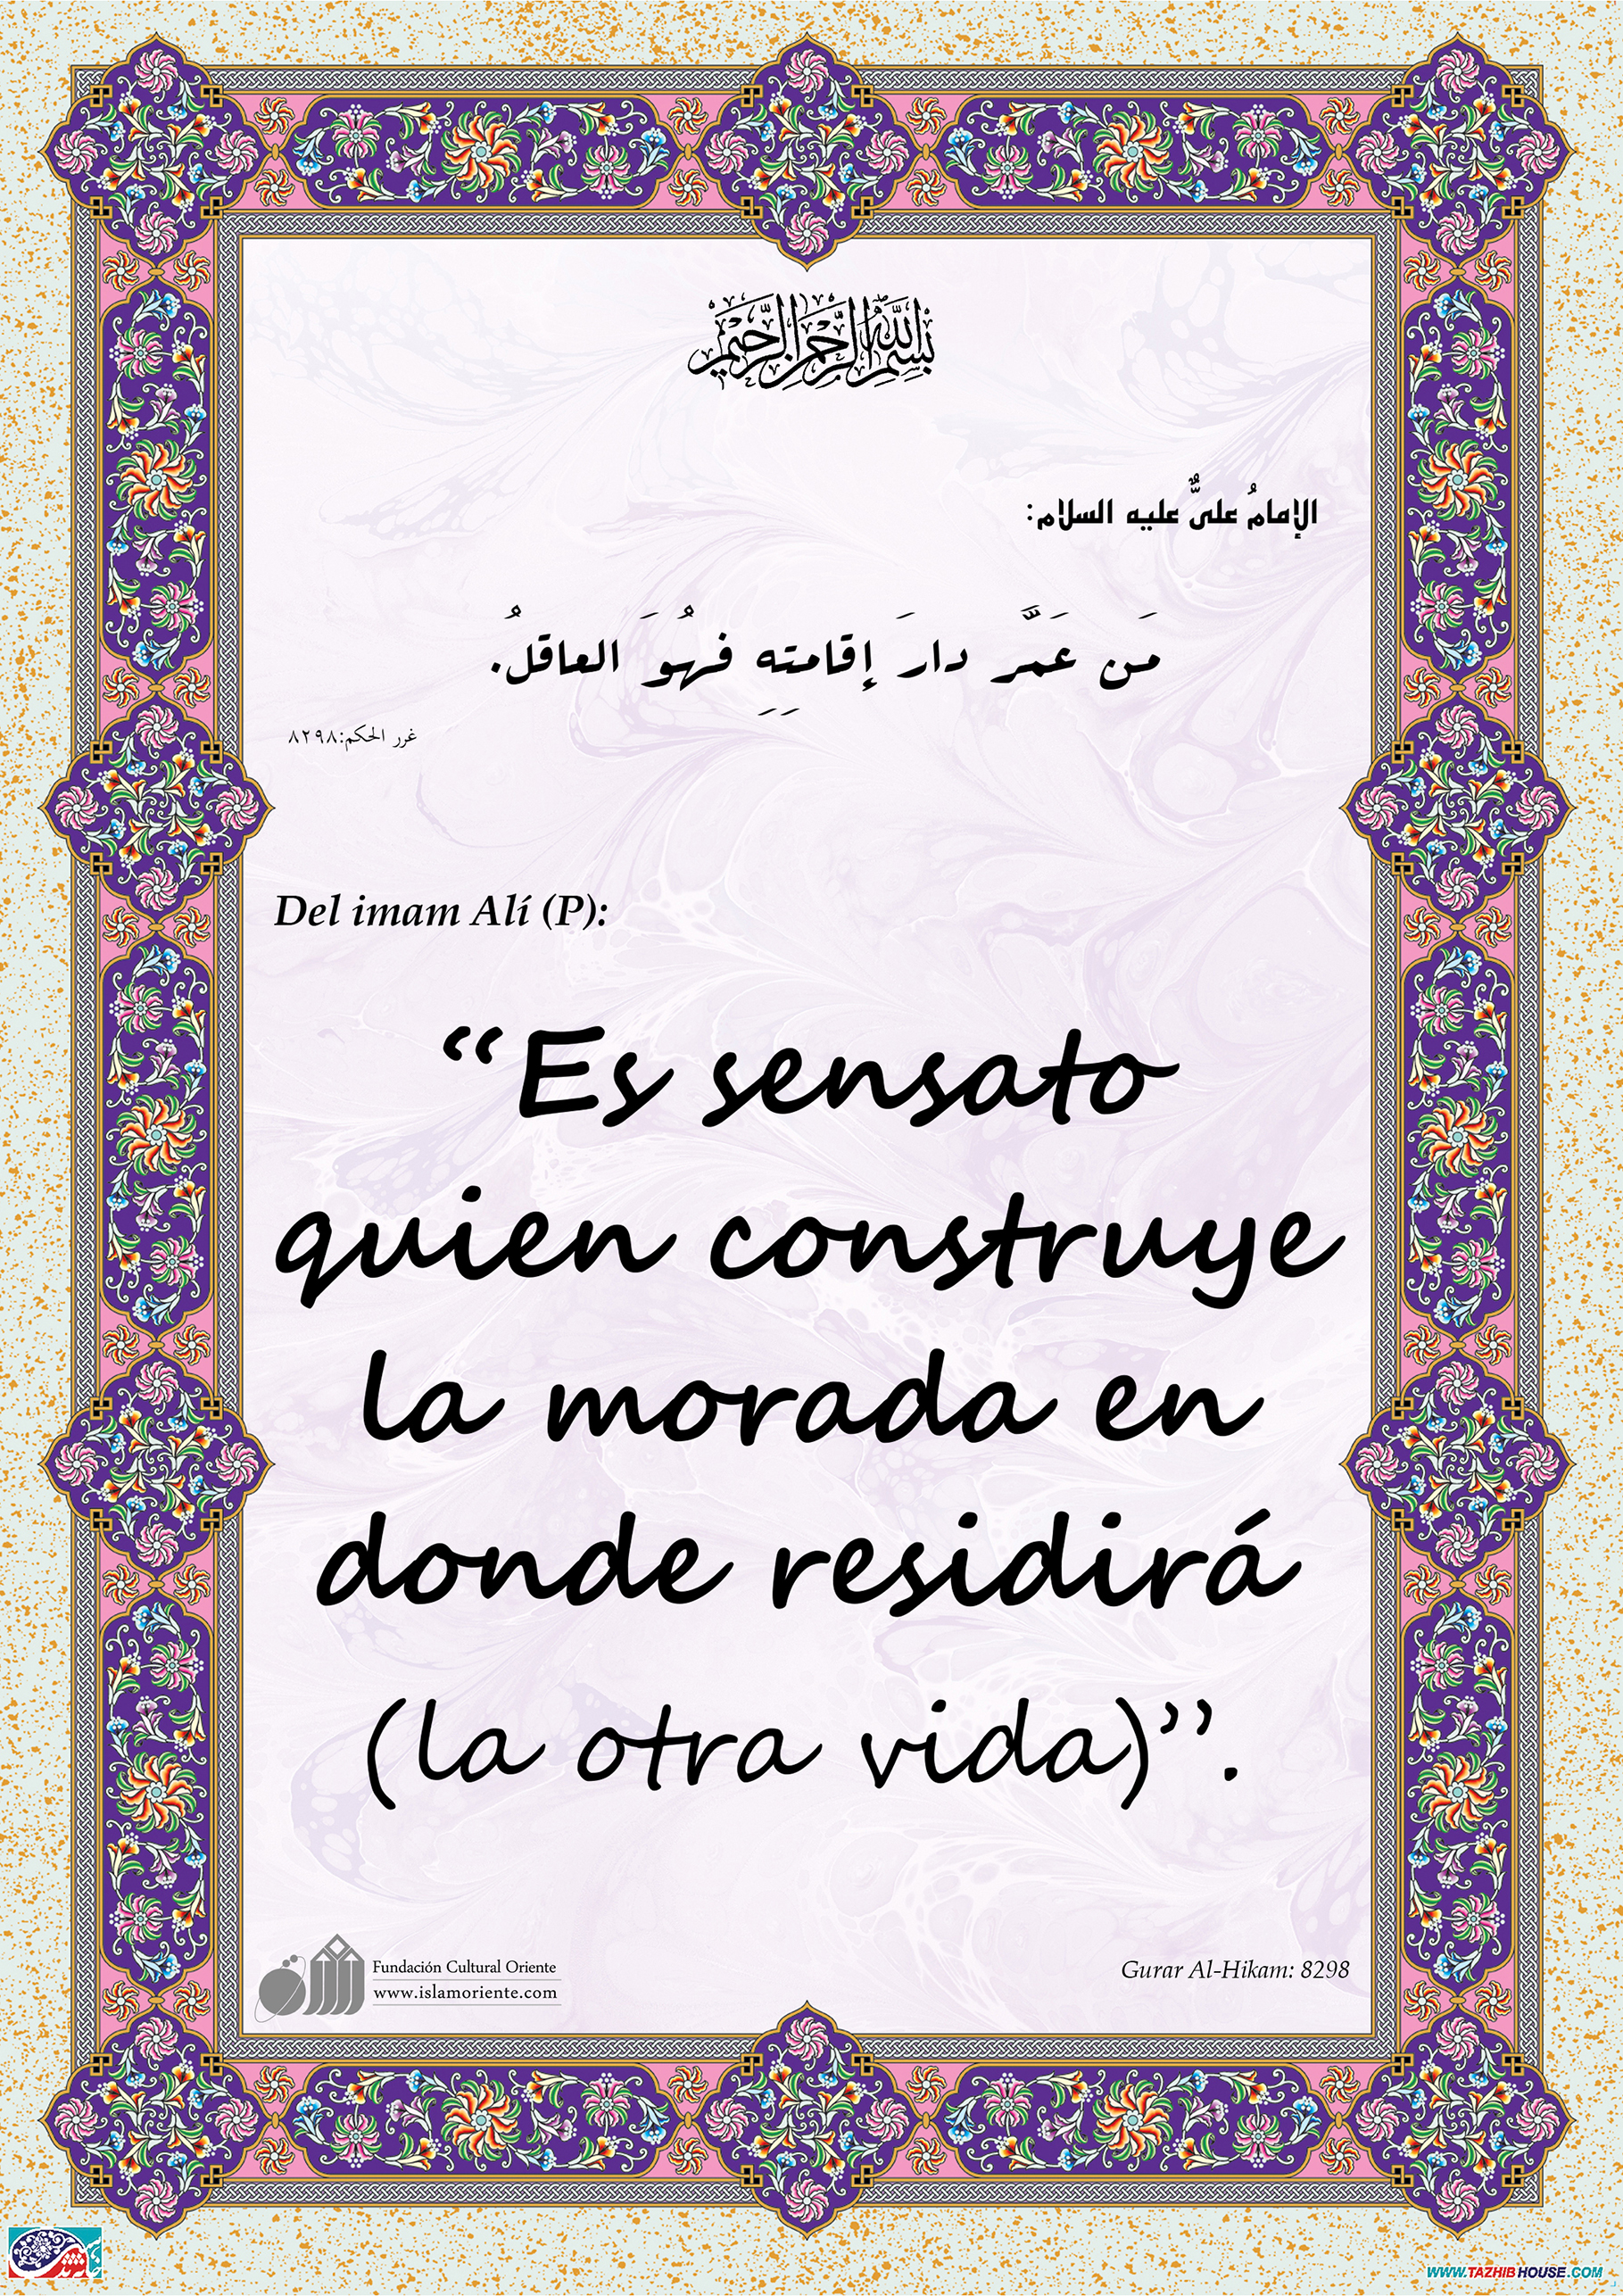 بسم الله الرحمن الرحيم
الإمامُ علىٌّ عليه السلام:
مَن عَمَّر دارَ إقامتِهِ فهُوَ العاقلُ.
غرر الحكم:٨٢٩٨
Del imam Alí (P):
“Es sensato
quien construye
la morada en
donde residirá
(la otra vida)”.
Fundación Cultural Oriente
www.islamoriente.com
Gurar Al-Hikam: 8298
WWW.TAZHIBHOUSE.COM